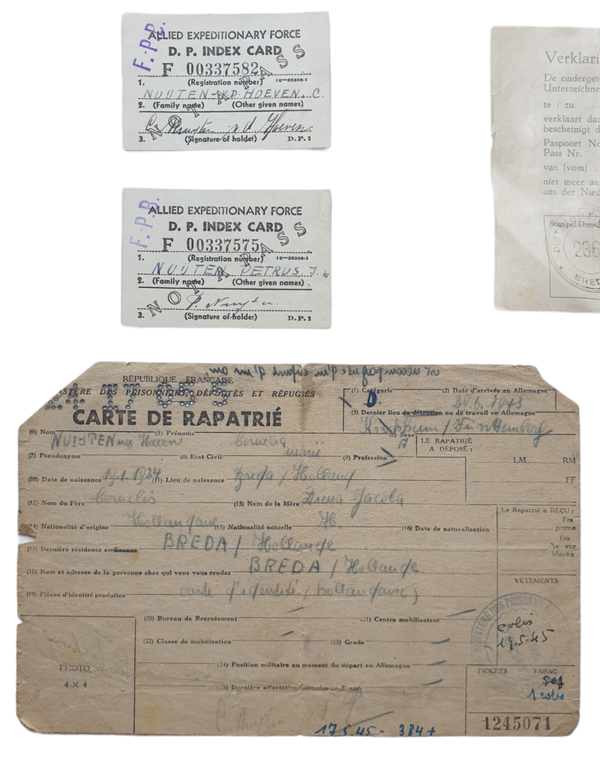 F.P.B.
ALLIED EXPEDITIONARY FORCE
D. P. INDEX CARD
F 00337582
1. (Registration number) 16-39306-1
NUIJTEN-V.D HOEVEN. C.
2. (Family name) (Other given names)
3. (Signature of holder) D.P.1
NOT A PASS
F.P.B.
ALLIED EXPEDITIONARY FORCE
D. P. INDEX CARD
F 00337575
1. (Registration number) 16-39306-1
NUIJTEN PETRUS J.
2. (Family name) (Other given names)
3. (Signature of holder) D.P.1
NOT A PASS
Verklari
De onderget
Unterzeichne
te / zu
verklaart dat
bescheinigt d
Paspoort No
Pass Nr.
van (vom)
niet meer aa
aus der Nied
236
BRED
et accompagnée d'un enfant d'un an.
RÉPUBLIQUE FRANÇAISE
MINISTÈRE DES PRISONNIERS, DÉPORTÉS ET RÉFUGIÉS
CARTE DE RAPATRIÉ
(1) Catégorie (2) Date d'arrivée en Allemagne
D. 1943
(3) Dernier lieu de détention ou de travail en Allemagne
(4) Nom (5) Prénoms (6) Sexe
NUIJTEN Cornelia
LE RAPATRIÉ A DÉPOSÉ :
(7) Pseudonyme (8) Etat Civil mariée (9) Profession
LM. RM
FF
(10) Date de naissance 1924 (11) Lieu de naissance Breda / Holland
(12) Nom du Père Cornelis (13) Nom de la Mère Jacoba
Le Rapatrié a REÇU :
(14) Nationalité d'origine Hollandaise (15) Nationalité actuelle H. (16) Date de naturalisation
(17) Dernière résidence en France BREDA / Hollande
(18) Nom et adresse de la personne chez qui vous vous rendez BREDA / Hollande.
(19) Pièces d'identité produites carte d'identité (hollandaise)
VÊTEMENTS
(20) Bureau de Recrutement (21) Centre mobilisateur
(22) Classe de mobilisation (23) Grade
colis
19.5.45
(24) Position militaire au moment du départ en Allemagne
PHOTO
4 X 4
TICKETS TABAC
1 colis
17.5.45 - 384+
1245071